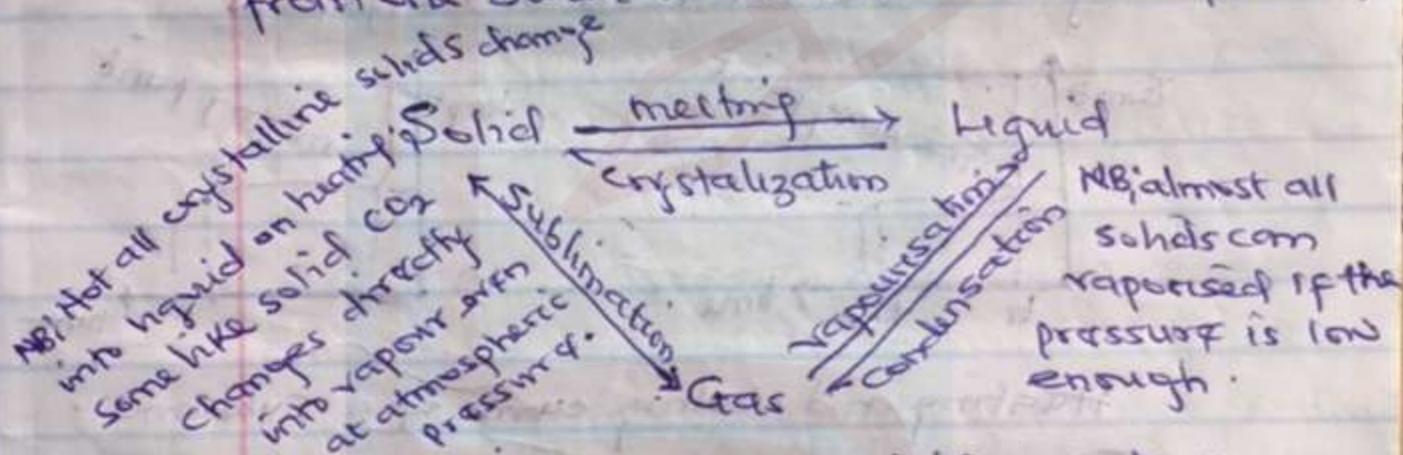 NB; Not all crystalline solids change
into liquid on heating;
Some like solid CO2
changes directly
into vapour even
at atmospheric
pressure.
Solid
melting
Liquid
crystalization
Sublimation
vapourisation
condensation
Gas
NB; almost all
solids can
vaporised if the
pressure is low
enough.